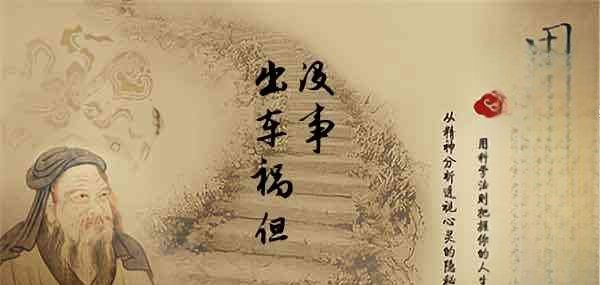 出车祸但
没事
从精神分析透视心灵的隐秘
用科学法则把握你的人生